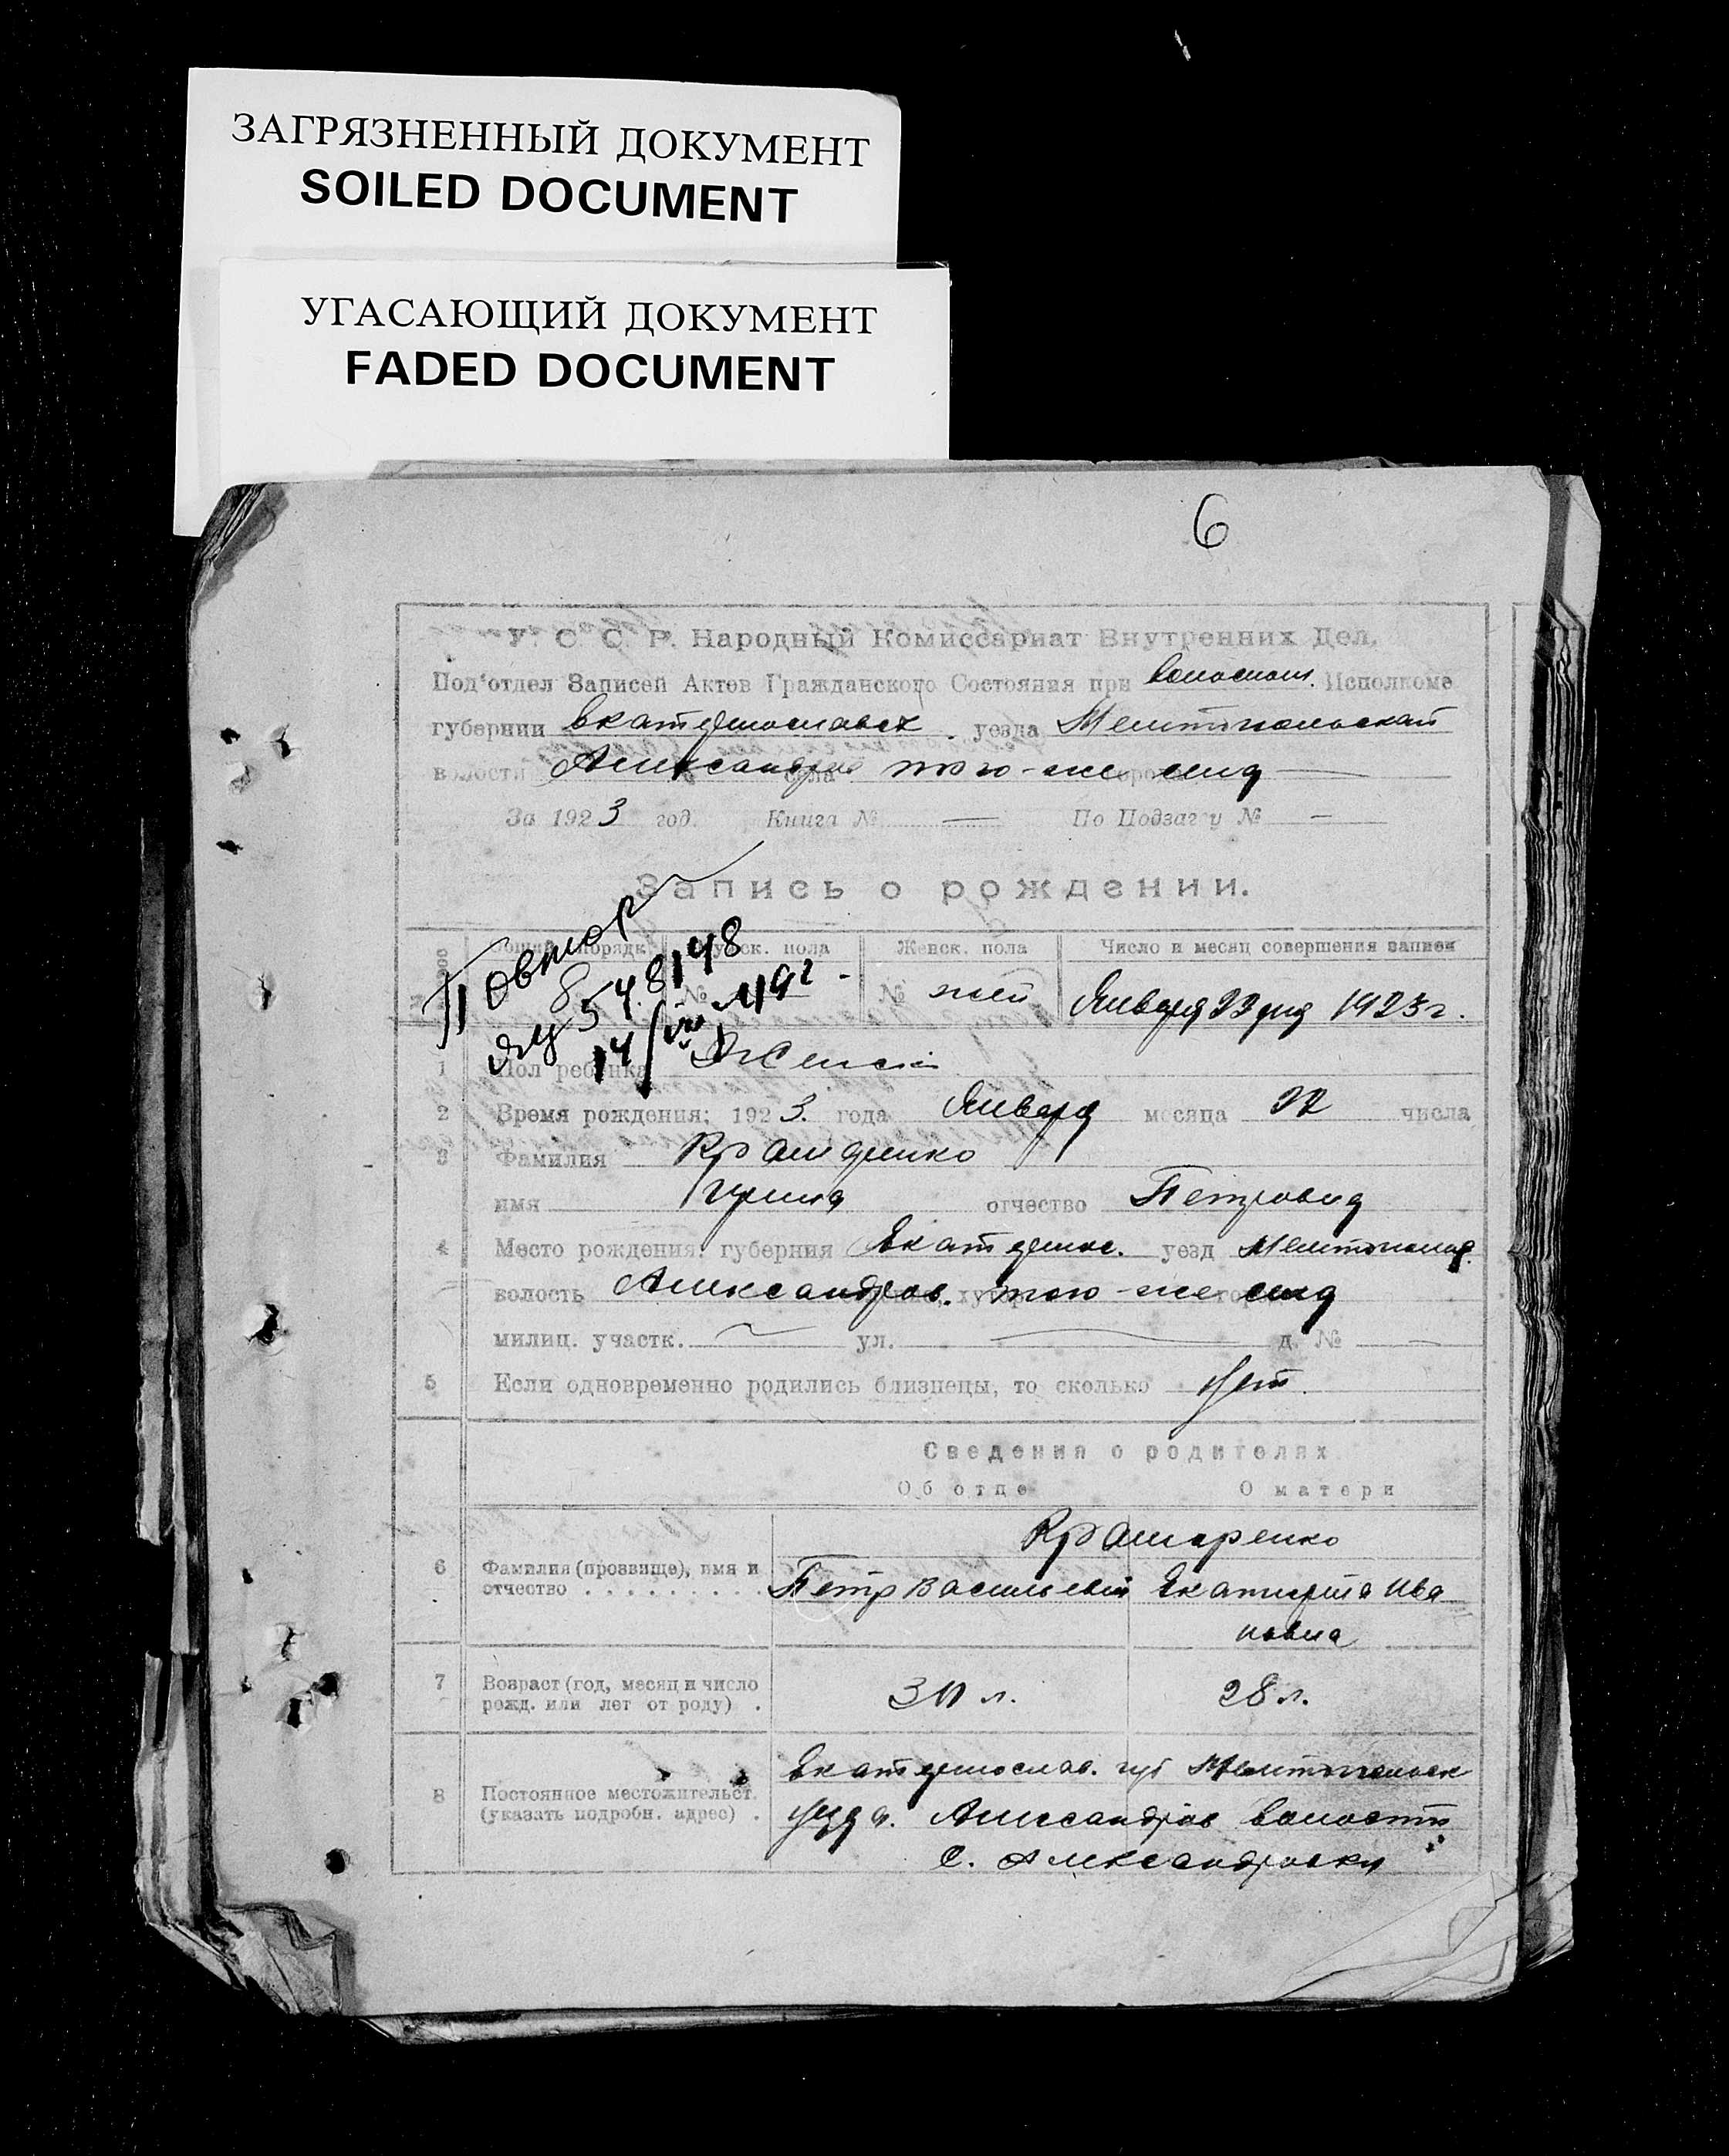 ЗАГРЯЗНЕННЫЙ ДОКУМЕНТ
SOILED DOCUMENT
УГАСАЮЩИЙ ДОКУМЕНТ
FADED DOCUMENT
6
У. С. С. Р. Народный Комиссариат Внутренних Дел.
Под'отдел Записей Актов Гражданского Состояния при волостном. Исполкоме
губернии Екатеринославск. уезда Мелитопольской
волости Александров того-же села
За 1923 год. Книга № — По Подзаг'у № —
Запись о рождении.
Повтор
Мужск. пола Женск. пола Число и месяц совершения записи
№ — № Января 23 дня 1923 г.
ЯЦ 548198
14/VIII 49г -
1 Пол ребенка Женский
2 Время рождения: 1923. года Января месяца 22 числа
3 Фамилия
имя Ирина отчество Петровна
4 Место рождения: губерния Екатеринос. уезд Мелитопол.
волость Александров. того-же села
милиц. участк. — ул. — д. № —
5 Если одновременно родились близнецы, то сколько Нет.
Сведения о родителях
Об отце О матери
6 Фамилия (прозвище), имя и
отчество . . . . . . . . .
Петр Васильевич Екатерина Ива
новна
7 Возраст (год, месяц и число
рожд. или лет от роду) .
л. 28 л.
8 Постоянное местожительст.
(указать подробн. адрес) .
Екатеринослав. губ Мелитопольск
уезда. Александров волости
с. Александровки